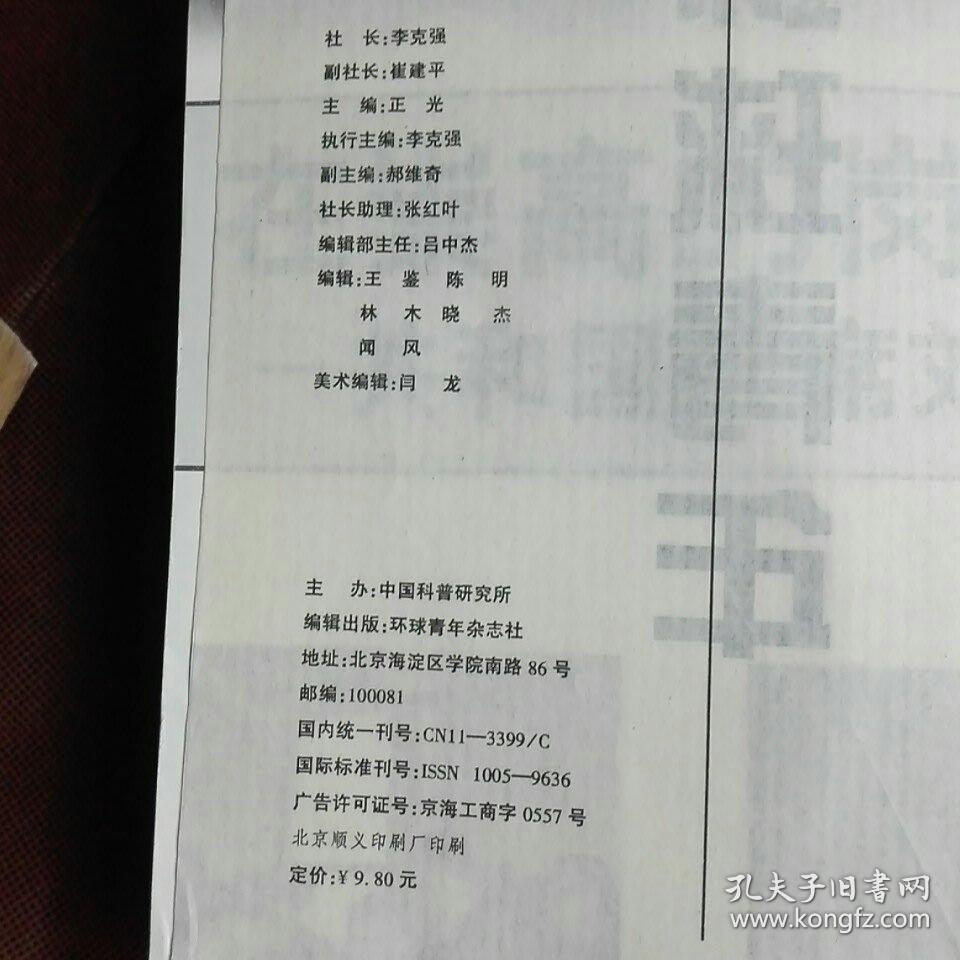 社　长:李克强
副社长:崔建平
主　编:正　光
执行主编:李克强
副主编:郝维奇
社长助理:张红叶
编辑部主任:吕中杰
编辑:王　鉴　陈　明
林　木　晓　杰
闻　风
美术编辑:闫　龙
主　办:中国科普研究所
编辑出版:环球青年杂志社
地址:北京海淀区学院南路 86 号
邮编:100081
国内统一刊号:CN11—3399/C
国际标准刊号:ISSN 1005—9636
广告许可证号:京海工商字 0557 号
北京顺义印刷厂印刷
定价:¥ 9.80 元
孔夫子旧书网
www.kongfz.com